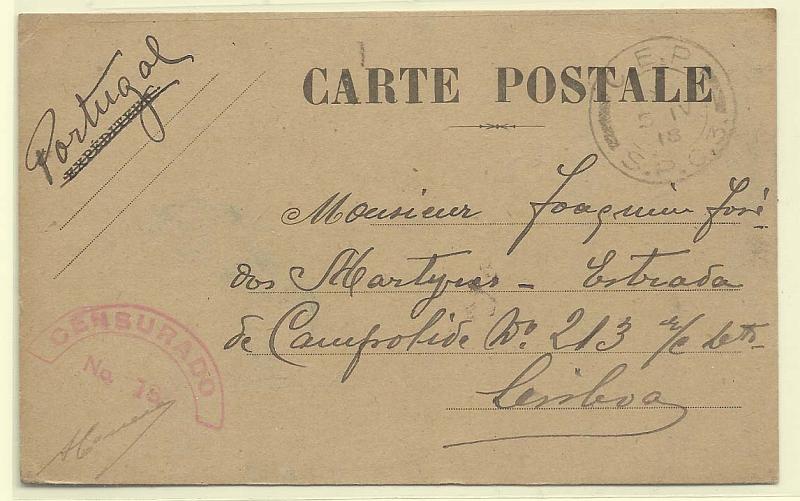 Portugal
EXPÉDITEUR
CARTE POSTALE
C.E.P.
5 IV
18
S.P.C. 3.
Monsieur Joaquim José
dos Martyres - Estrada
de Campolide Nº 213 r/c
Lisboa
CENSURADO
No. 19